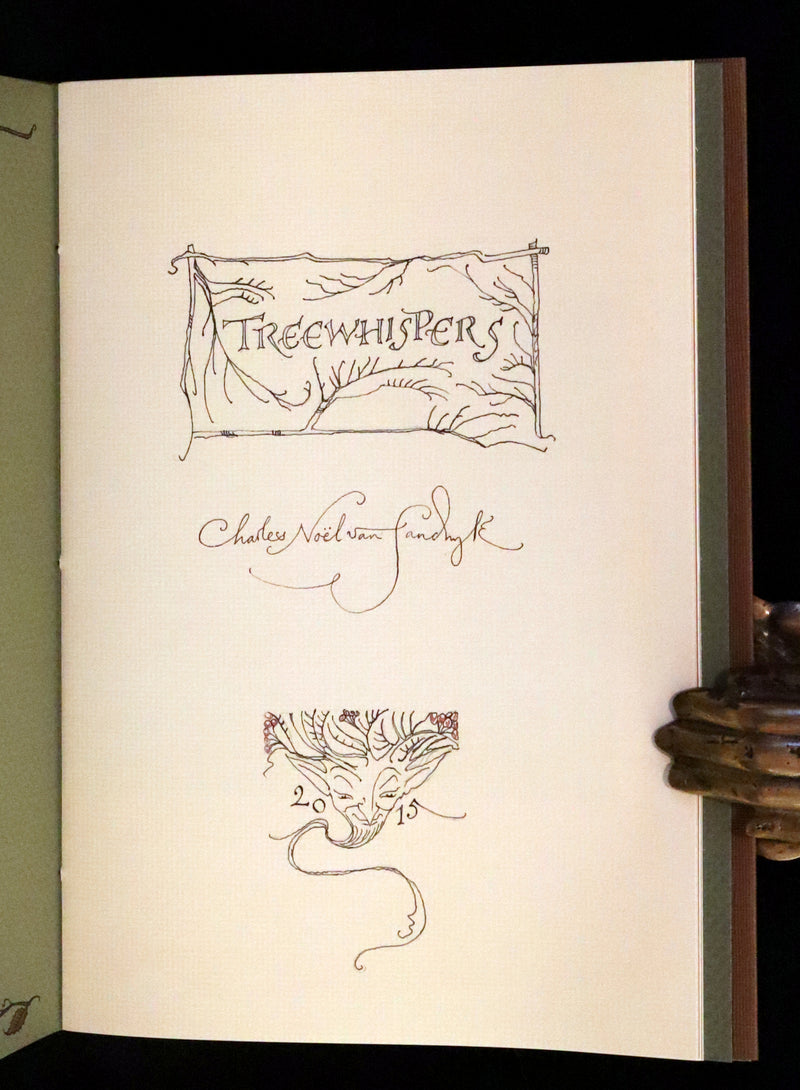 TREEWHISPERS
Charles Noël van Sandwyk
2015